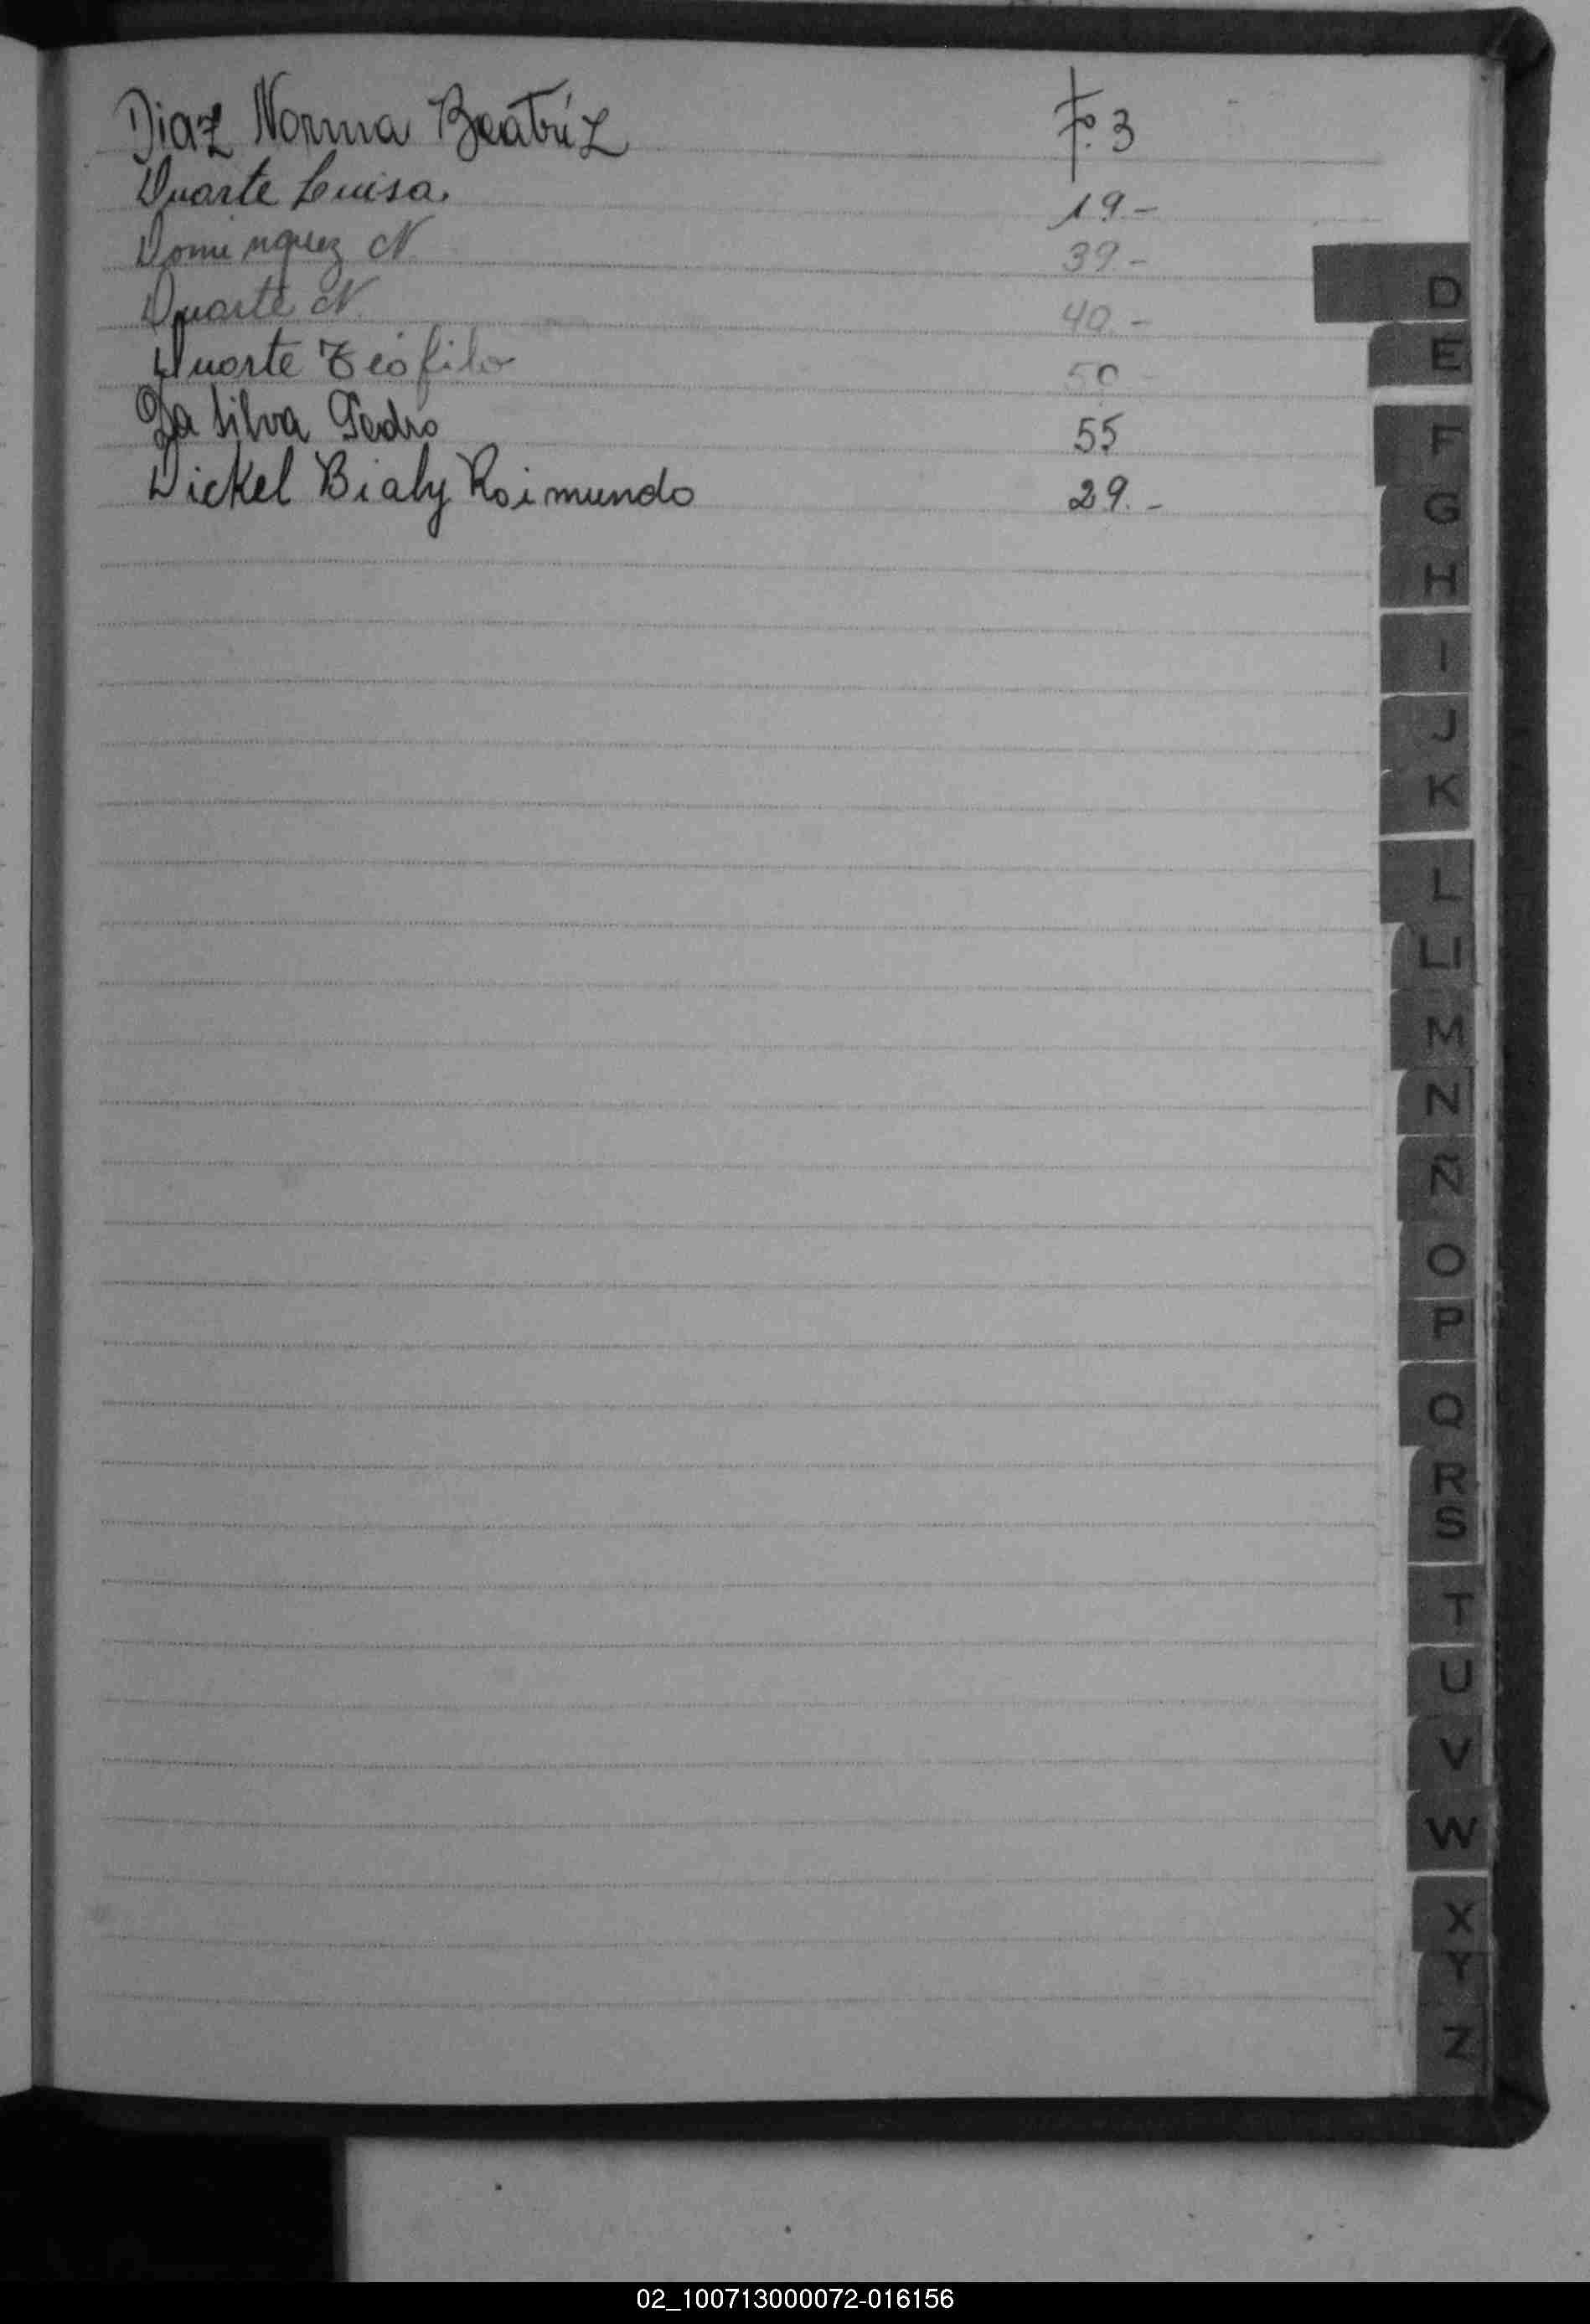 Diaz Norma Beatríz Fº. 3
Duarte Luisa. 19.-
Dominguez N. 39.-
Duarte N. 40.-
Duarte Teófilo 50-
Da Silva Pedro 55
Dickel Bialy Raimundo 29.-
D
E
F
G
H
I
J
K
L
LL
M
N
Ñ
O
P
Q
R
S
T
U
V
W
X
Y
Z
02_100713000072-016156